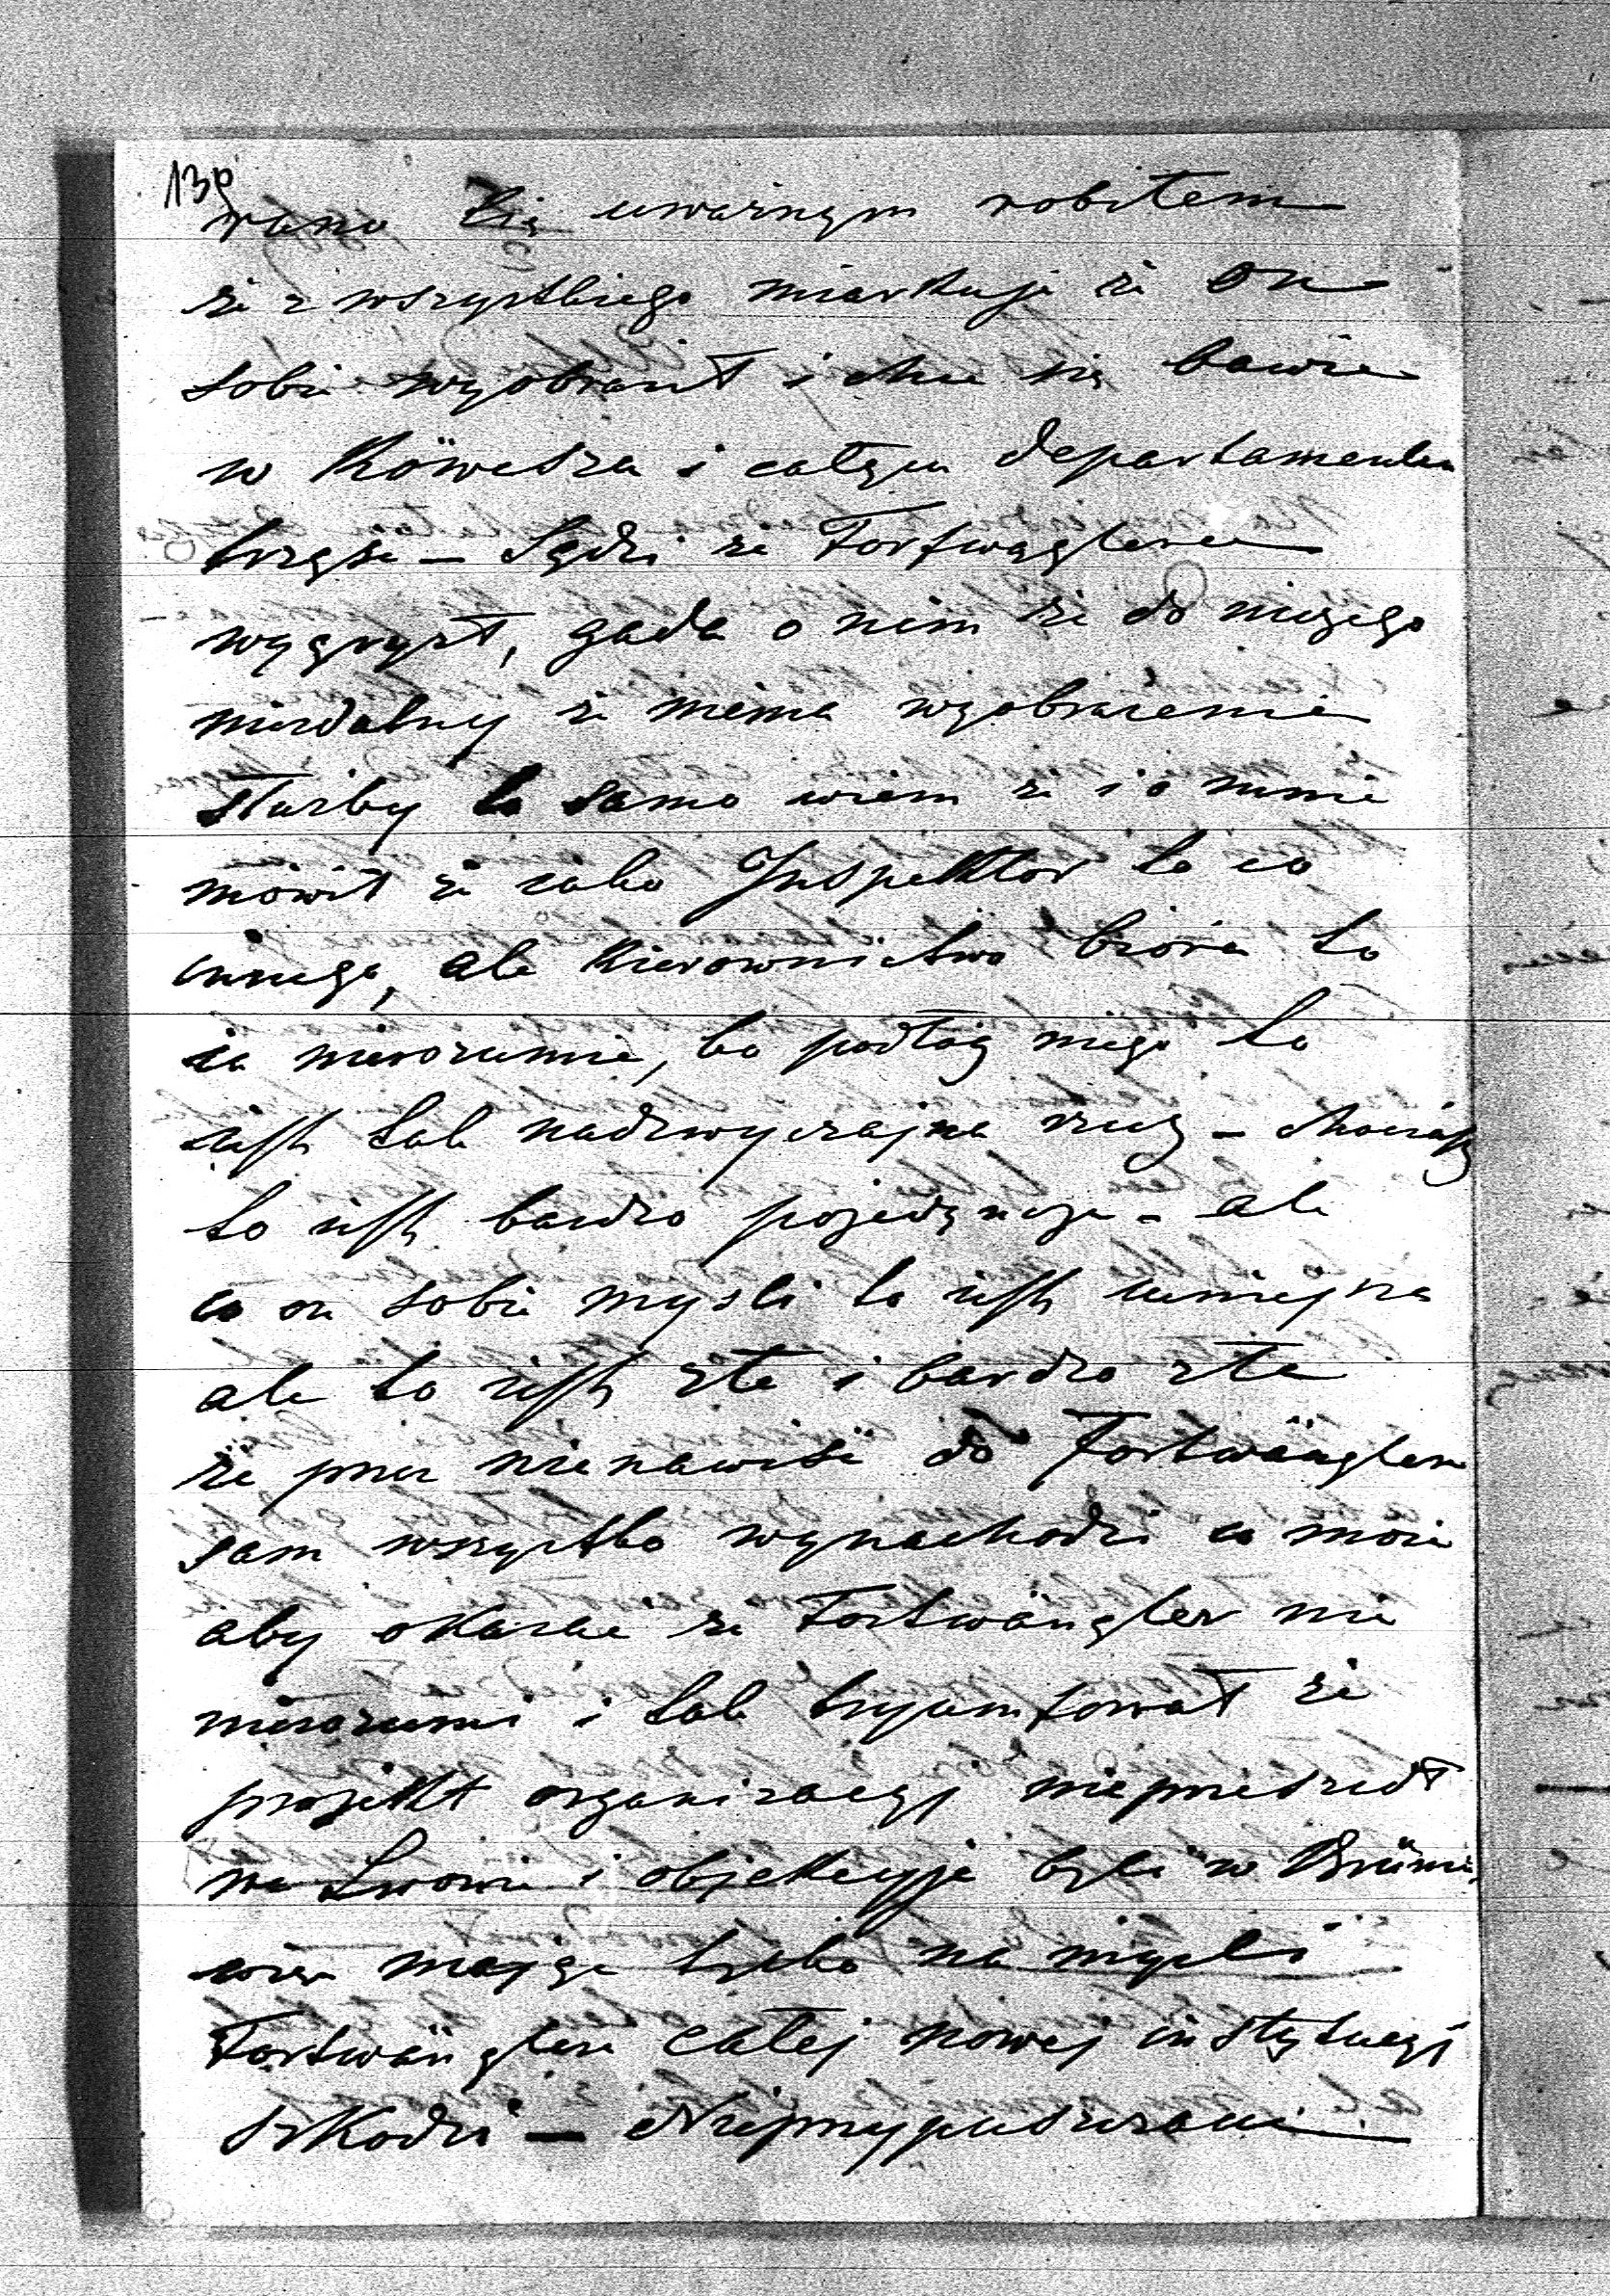 130
rano się uważnym robiłem
że z wszystkiego miarkuję że on
sobie wyobraził i chce się bawić
w Köwesza i całym departamentem
trzęsie – Sądzi że Fortwänglera
wygryzł, gada o nim że do niczego
niezdatny że niema wyobrażenia
służby to samo wiem że i o mnie
mówił że jako Inspektor to co
innego, ale Kierownictwo biora to
ja nierozumie, bo podłóg niego to
jest tak nadzwyczajna rzecz – chociaż
to jest bardzo pojedyncze – ale
co on sobie mysli to jest mniejsza
ale to jest złe i bardzo złe
że przez nienawiść do Fortwänglera
sam wszystko wynachodzi co może
aby okazać że Fortwängler nie
nierozumi i tak tryumfował że
projekt organizacyj nieprzeszedł
we Lwowie i objekcyje były w Brünnie
więc mając tylko na mysli
Fortwänglera całej nowej instytucyj
szkodzi – Nieprzypuszczacie